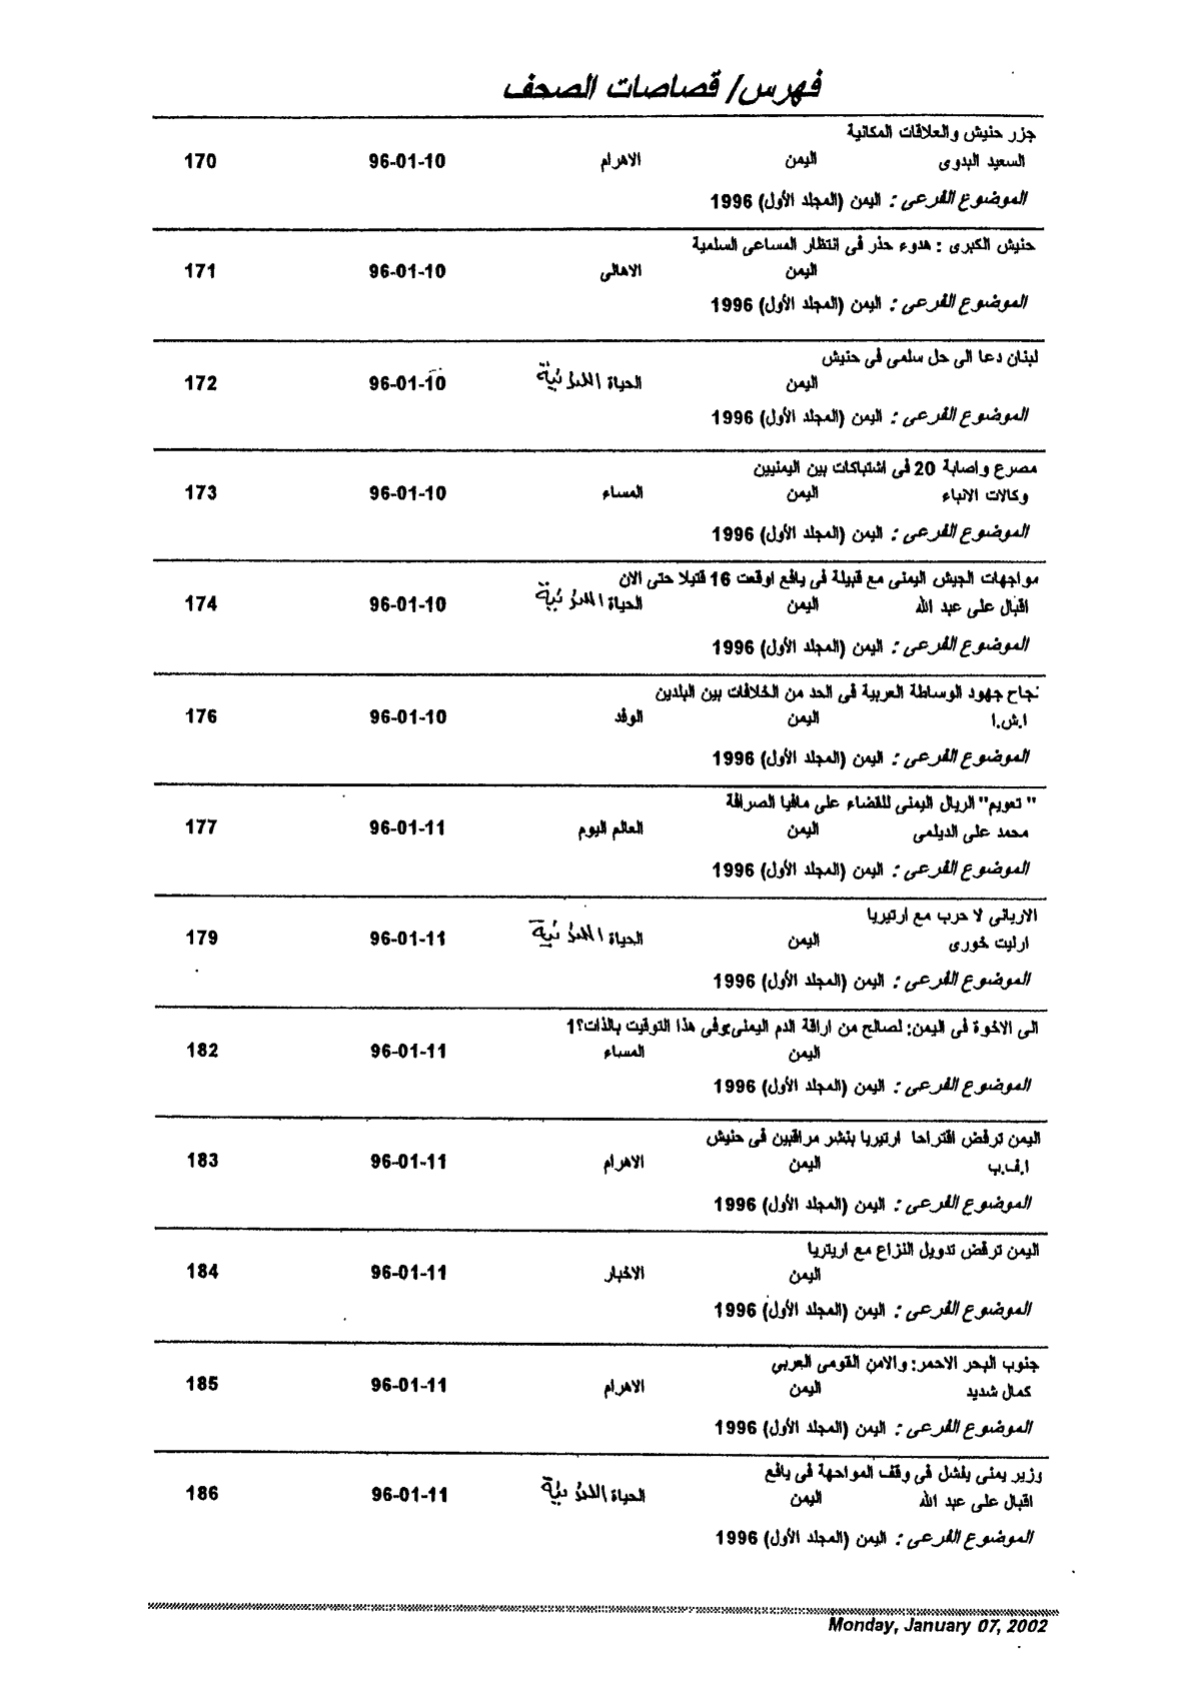 فهرس/ قصاصات الصحف
جزر حنيش والعلاقات المكانية
السعيد البدوى اليمن الاهرام 96-01-10 170
الموضوع الفرعى : اليمن (المجلد الأول) 1996
حنيش الكبرى : هدوء حذر فى انتظار المساعى السلمية
اليمن الاهالى 96-01-10 171
الموضوع الفرعى : اليمن (المجلد الأول) 1996
لبنان دعا الى حل سلمى فى حنيش
اليمن الحياة 96-01-10 172
الموضوع الفرعى : اليمن (المجلد الأول) 1996
مصرع واصابة 20 فى اشتباكات بين اليمنيين
وكالات الانباء اليمن المساء 96-01-10 173
الموضوع الفرعى : اليمن (المجلد الأول) 1996
مواجهات الجيش اليمنى مع قبيلة فى يافع اوقعت 16 قتيلا حتى الان
اقبال على عبد الله اليمن الحياة 96-01-10 174
الموضوع الفرعى : اليمن (المجلد الأول) 1996
نجاح جهود الوساطة العربية فى الحد من الخلافات بين البلدين
ا.ش.ا اليمن الوفد 96-01-10 176
الموضوع الفرعى : اليمن (المجلد الأول) 1996
" تعويم" الريال اليمنى للقضاء على مافيا الصرافة
محمد على الديلمى اليمن العالم اليوم 96-01-11 177
الموضوع الفرعى : اليمن (المجلد الأول) 1996
الاريانى لا حرب مع ارتيريا
ارليت خورى اليمن الحياة 96-01-11 179
الموضوع الفرعى : اليمن (المجلد الأول) 1996
الى الاخوة فى اليمن: لصالح من اراقة الدم اليمنى وفى هذا التوقيت بالذات؟1
اليمن المساء 96-01-11 182
الموضوع الفرعى : اليمن (المجلد الأول) 1996
اليمن ترفض اقتراحا ارتيريا بنشر مراقبين فى حنيش
ا.ف.ب اليمن الاهرام 96-01-11 183
الموضوع الفرعى : اليمن (المجلد الأول) 1996
اليمن ترفض تدويل النزاع مع اريتريا
اليمن الاخبار 96-01-11 184
الموضوع الفرعى : اليمن (المجلد الأول) 1996
جنوب البحر الاحمر: والامن القومى العربي
كمال شديد اليمن الاهرام 96-01-11 185
الموضوع الفرعى : اليمن (المجلد الأول) 1996
وزير يمنى يفشل فى وقف المواجهة فى يافع
اقبال على عبد الله اليمن الحياة 96-01-11 186
الموضوع الفرعى : اليمن (المجلد الأول) 1996
Monday, January 07, 2002